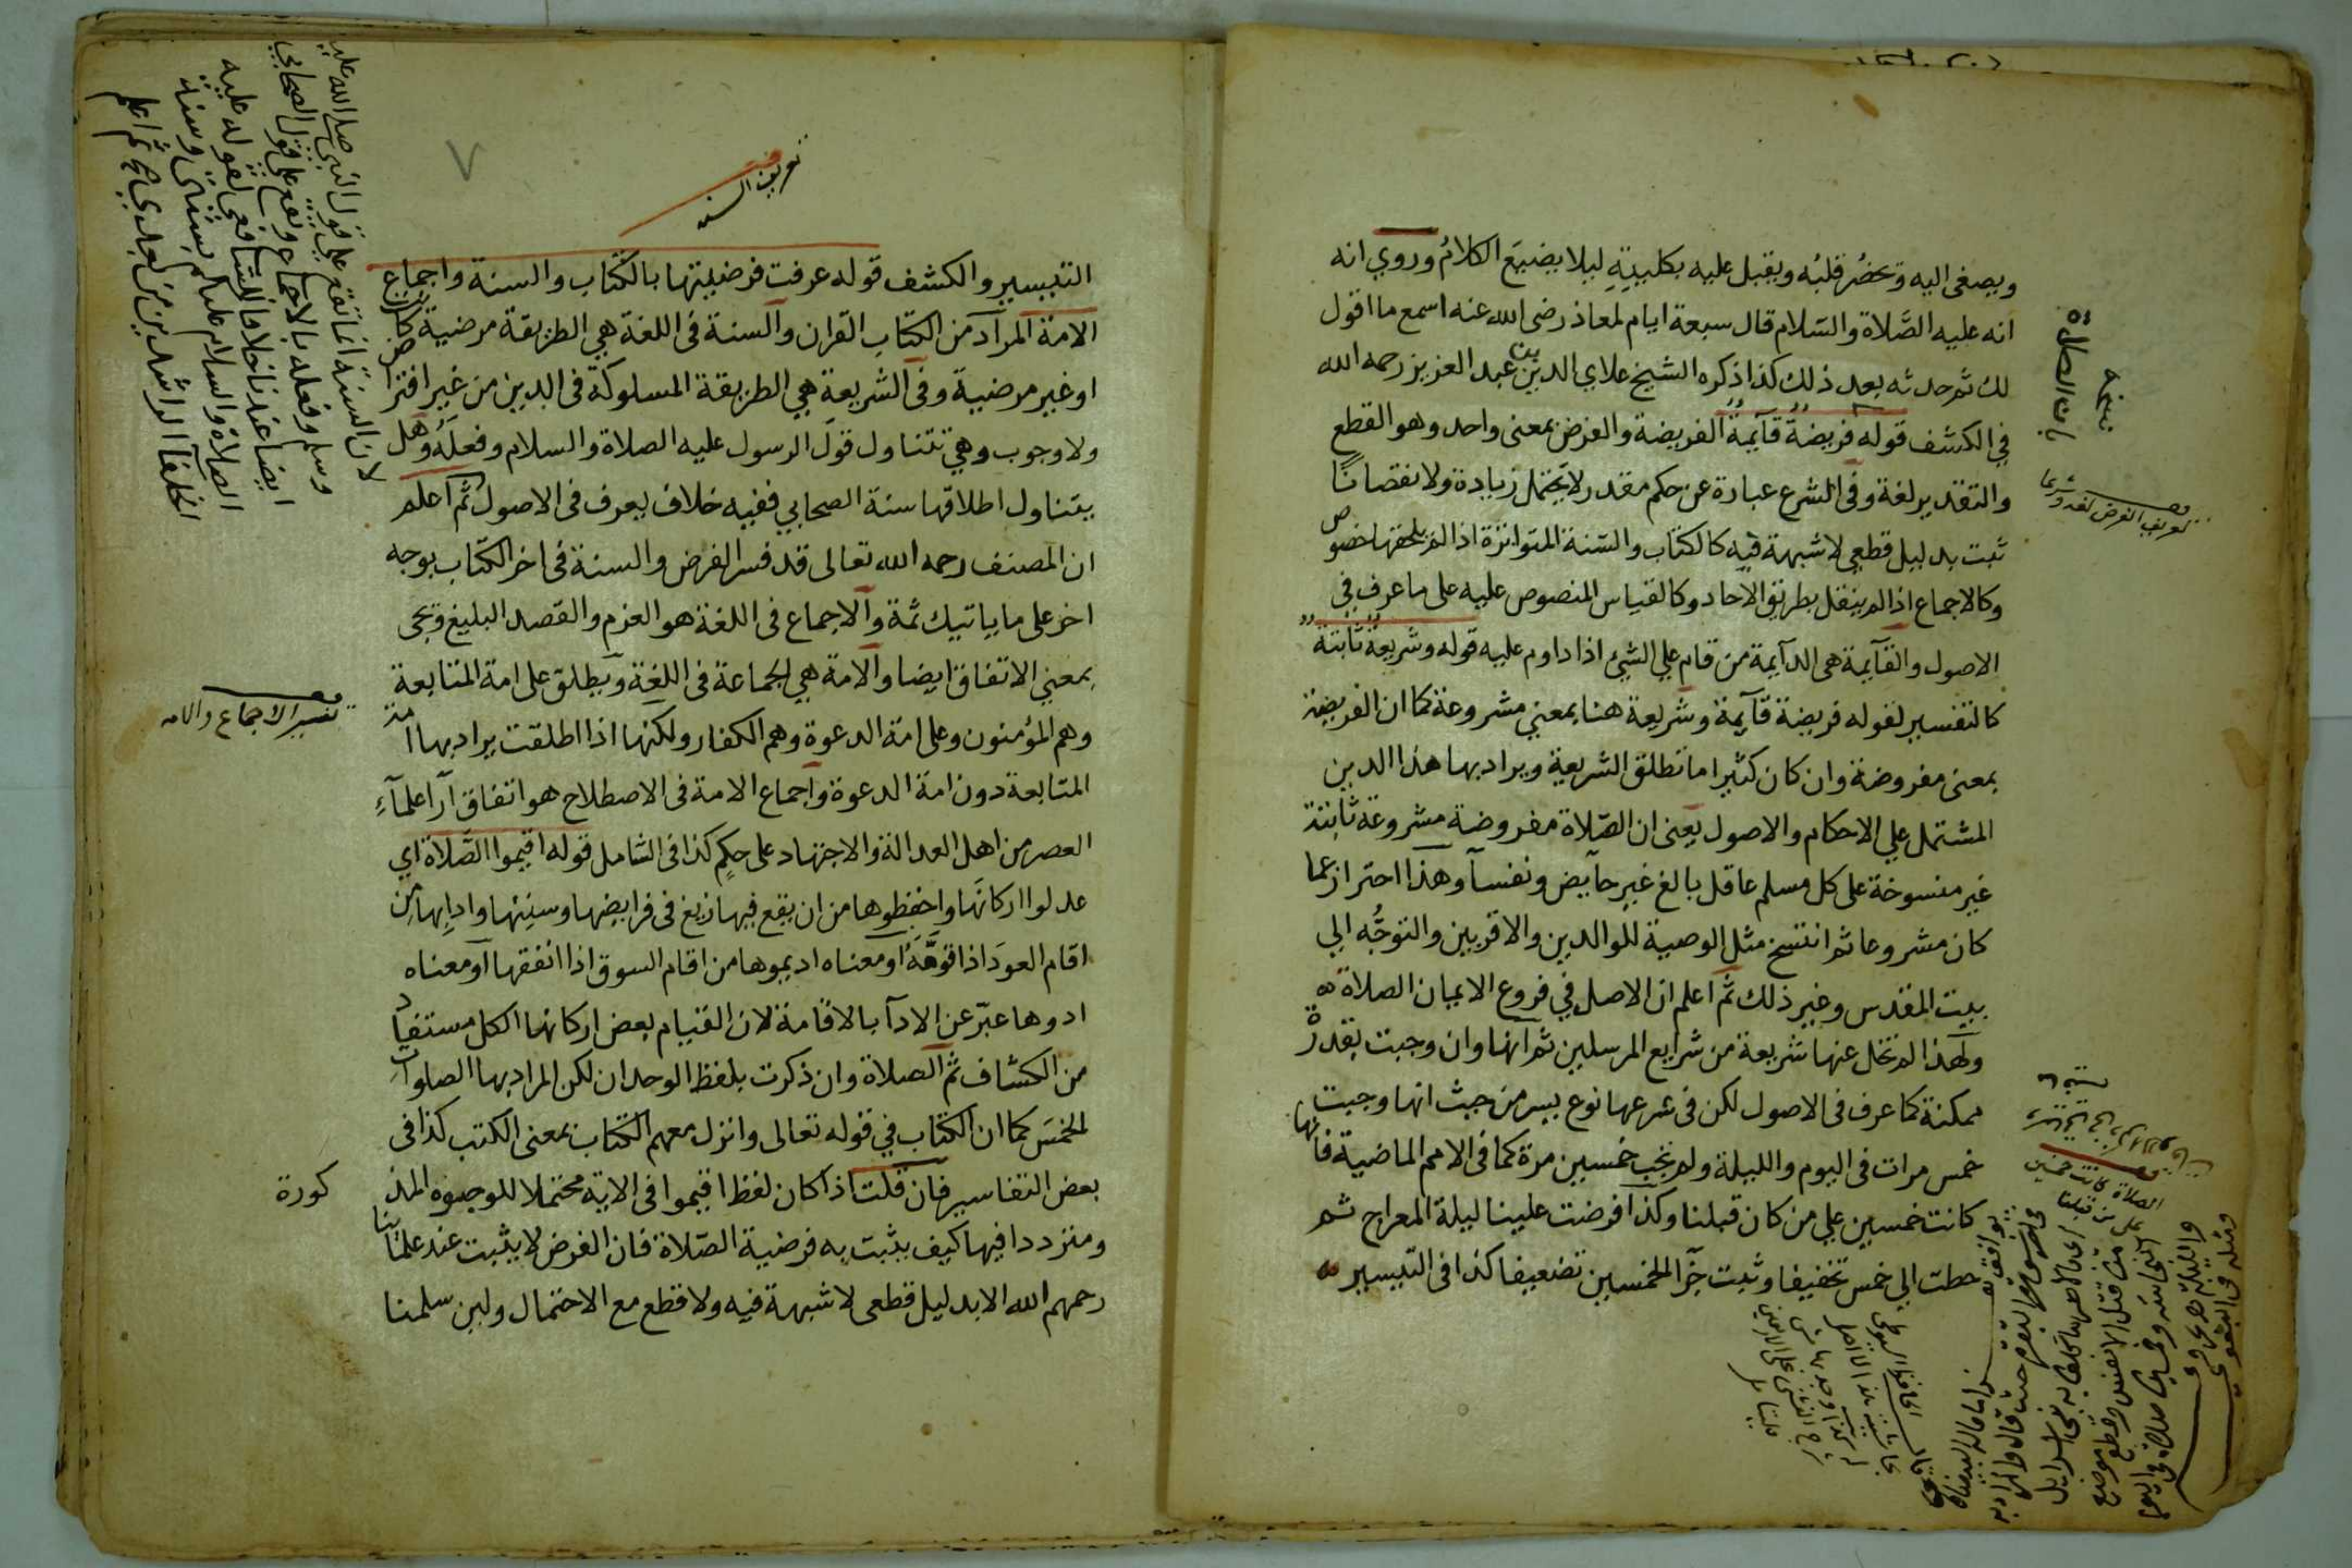 ويصغى اليه وتحضُر قلبُه ويقبل عليه بكليتِهِ ليلا يضيعَ الكلامُ وروي انه
انه عليه الصَّلاة والسّلام قال سبعة ايام لمعاذ رضى الله عنه اسمع ما اقول
لك ثم حدثه بعد ذلك كذا ذكره الشيخ علاى الدين بن عبد العزيز رحمه الله
في الكشف قوله فريضة قآيمة الفريضة والفرض بمعنى واحد وهو القطع
والتقدير لغة وفى الشرع عبارة عن حكم مقدر لا يحتمل زيادة ولا نقصانًا
ثبت بدليل قطعي لا شبهة فيه كالكتاب والسّنة المتواترة اذا لم يلحقها خصوص
وكالاجماع اذا لم ينقل بطريق الاحاد وكالقياس المنصوص عليه على ما عرف في
الاصول والقآيمة هى الدآيمة من قام علي الشئ اذا داوم عليه قوله وشريعة ثابتة
كالتفسير لقوله فريضة قآيمة وشريعة هنا بمعني مشروعة كما ان الفريضة
بمعنى مفروضة وان كان كثيرا ما تطلق الشريعة ويراد بها هذا الدين
المشتمل علي الاحكام والاصول يعنى ان الصّلاة مفروضة مشروعة ثابتة
غير منسوخة على كل مسلم عاقل بالغ غير حآيض ونفسآ وهذا احتراز عما
كان مشروعا ثم انتسخ مثل الوصية للوالدين والاقربين والتوجُّه الي
بيت المقدس وغير ذلك ثم اعلم ان الاصل في فروع الايمان الصلاة
ولهذا لم تخل عنها شريعة من شرايع المرسلين ثم انها وان وجبت بقدرة
ممكنة كما عرف فى الاصول لكن فى شرعها نوع يسر من حيث انها وجبت
خمس مرات فى اليوم والليلة ولم تجب خمسين مرة كما فى الامم الماضية فانها
كانت خمسين علي من كان قبلنا وكذا فرضت علينا ليلة المعراج ثم
حطت الي خمس تخفيفا وثبت جزآ الخمسين تضعيفا كذا فى التيسير
تعريف الفرض لغة وشرعا
الصلاة كانت خمسين
على من قبلنا
٧
تعريف السنه
التيسير والكشف قوله عرفت فرضيتها بالكتاب والسنة واجماع
الامة المراد من الكتاب القران والسنة فى اللغة هي الطريقة مرضية كانت
او غير مرضية وفى الشريعة هي الطريقة المسلوكة فى الدين من غير افتراض
ولا وجوب وهي تتناول قول الرسول عليه الصلاة والسلام وفعله وهل
يتناول اطلاقها سنة الصحابي ففيه خلاف يعرف فى الاصول ثم اعلم
ان المصنف رحمه الله تعالى قد فسر الفرض والسنة فى اخر الكتاب بوجه
اخر على ما ياتيك ثمة والاجماع فى اللغة هو العزم والقصد البليغ وتجى
بمعني الاتفاق ايضا والامة هي الجماعة فى اللغة ويطلق على امة المتابعة
وهم المؤمنون وعلى امة الدعوة وهم الكفار ولكنها اذا اطلقت يراد بها امة
المتابعة دون امة الدعوة واجماع الامة فى الاصطلاح هو اتفاق آرا علمآء
العصر من اهل العدالة والاجتهاد على حكمٍ كذا فى الشامل قوله اقيموا الصّلاة اي
عدلوا اركانها واحفظوها من ان يقع فيها زيغ فى فرايضها وسننها وادابها من
اقام العودَ اذا قوَّمَهُ او معناه اديموها من اقام السوق اذا انفقها او معناه
ادوها عبّر عن الادآ بالاقامة لان القيام بعض اركانها الكل مستفاد
من الكشاف ثم الصلاة وان ذكرت بلفظ الوحدان لكن المراد بها الصلوات
الخمسَ كما ان الكتاب في قوله تعالى وانزل معهم الكتاب بمعنى الكتب كذا فى
بعض التفاسير فان قلت اذا كان لفظ اقيموا فى الاية محتملا للوجوه المذ
كورة
ومترددا فيها كيف يثبت به فرضية الصّلاة فان الفرض لا يثبت عند علمائنا
رحمهم الله الا بدليل قطعى لا شبهة فيه ولا قطع مع الاحتمال ولين سلمنا
تفسير الاجماع والامه
لان السنة انما تقع على قول النبى صلى الله عليه
وسلم وفعله بالاجماع وتقع على قول الصحابي
ايضا عندنا خلافا للشافعى لقوله عليه
الصلاة والسلام عليكم بسنتى وسنة
الخلفآ الراشدين من بعدي